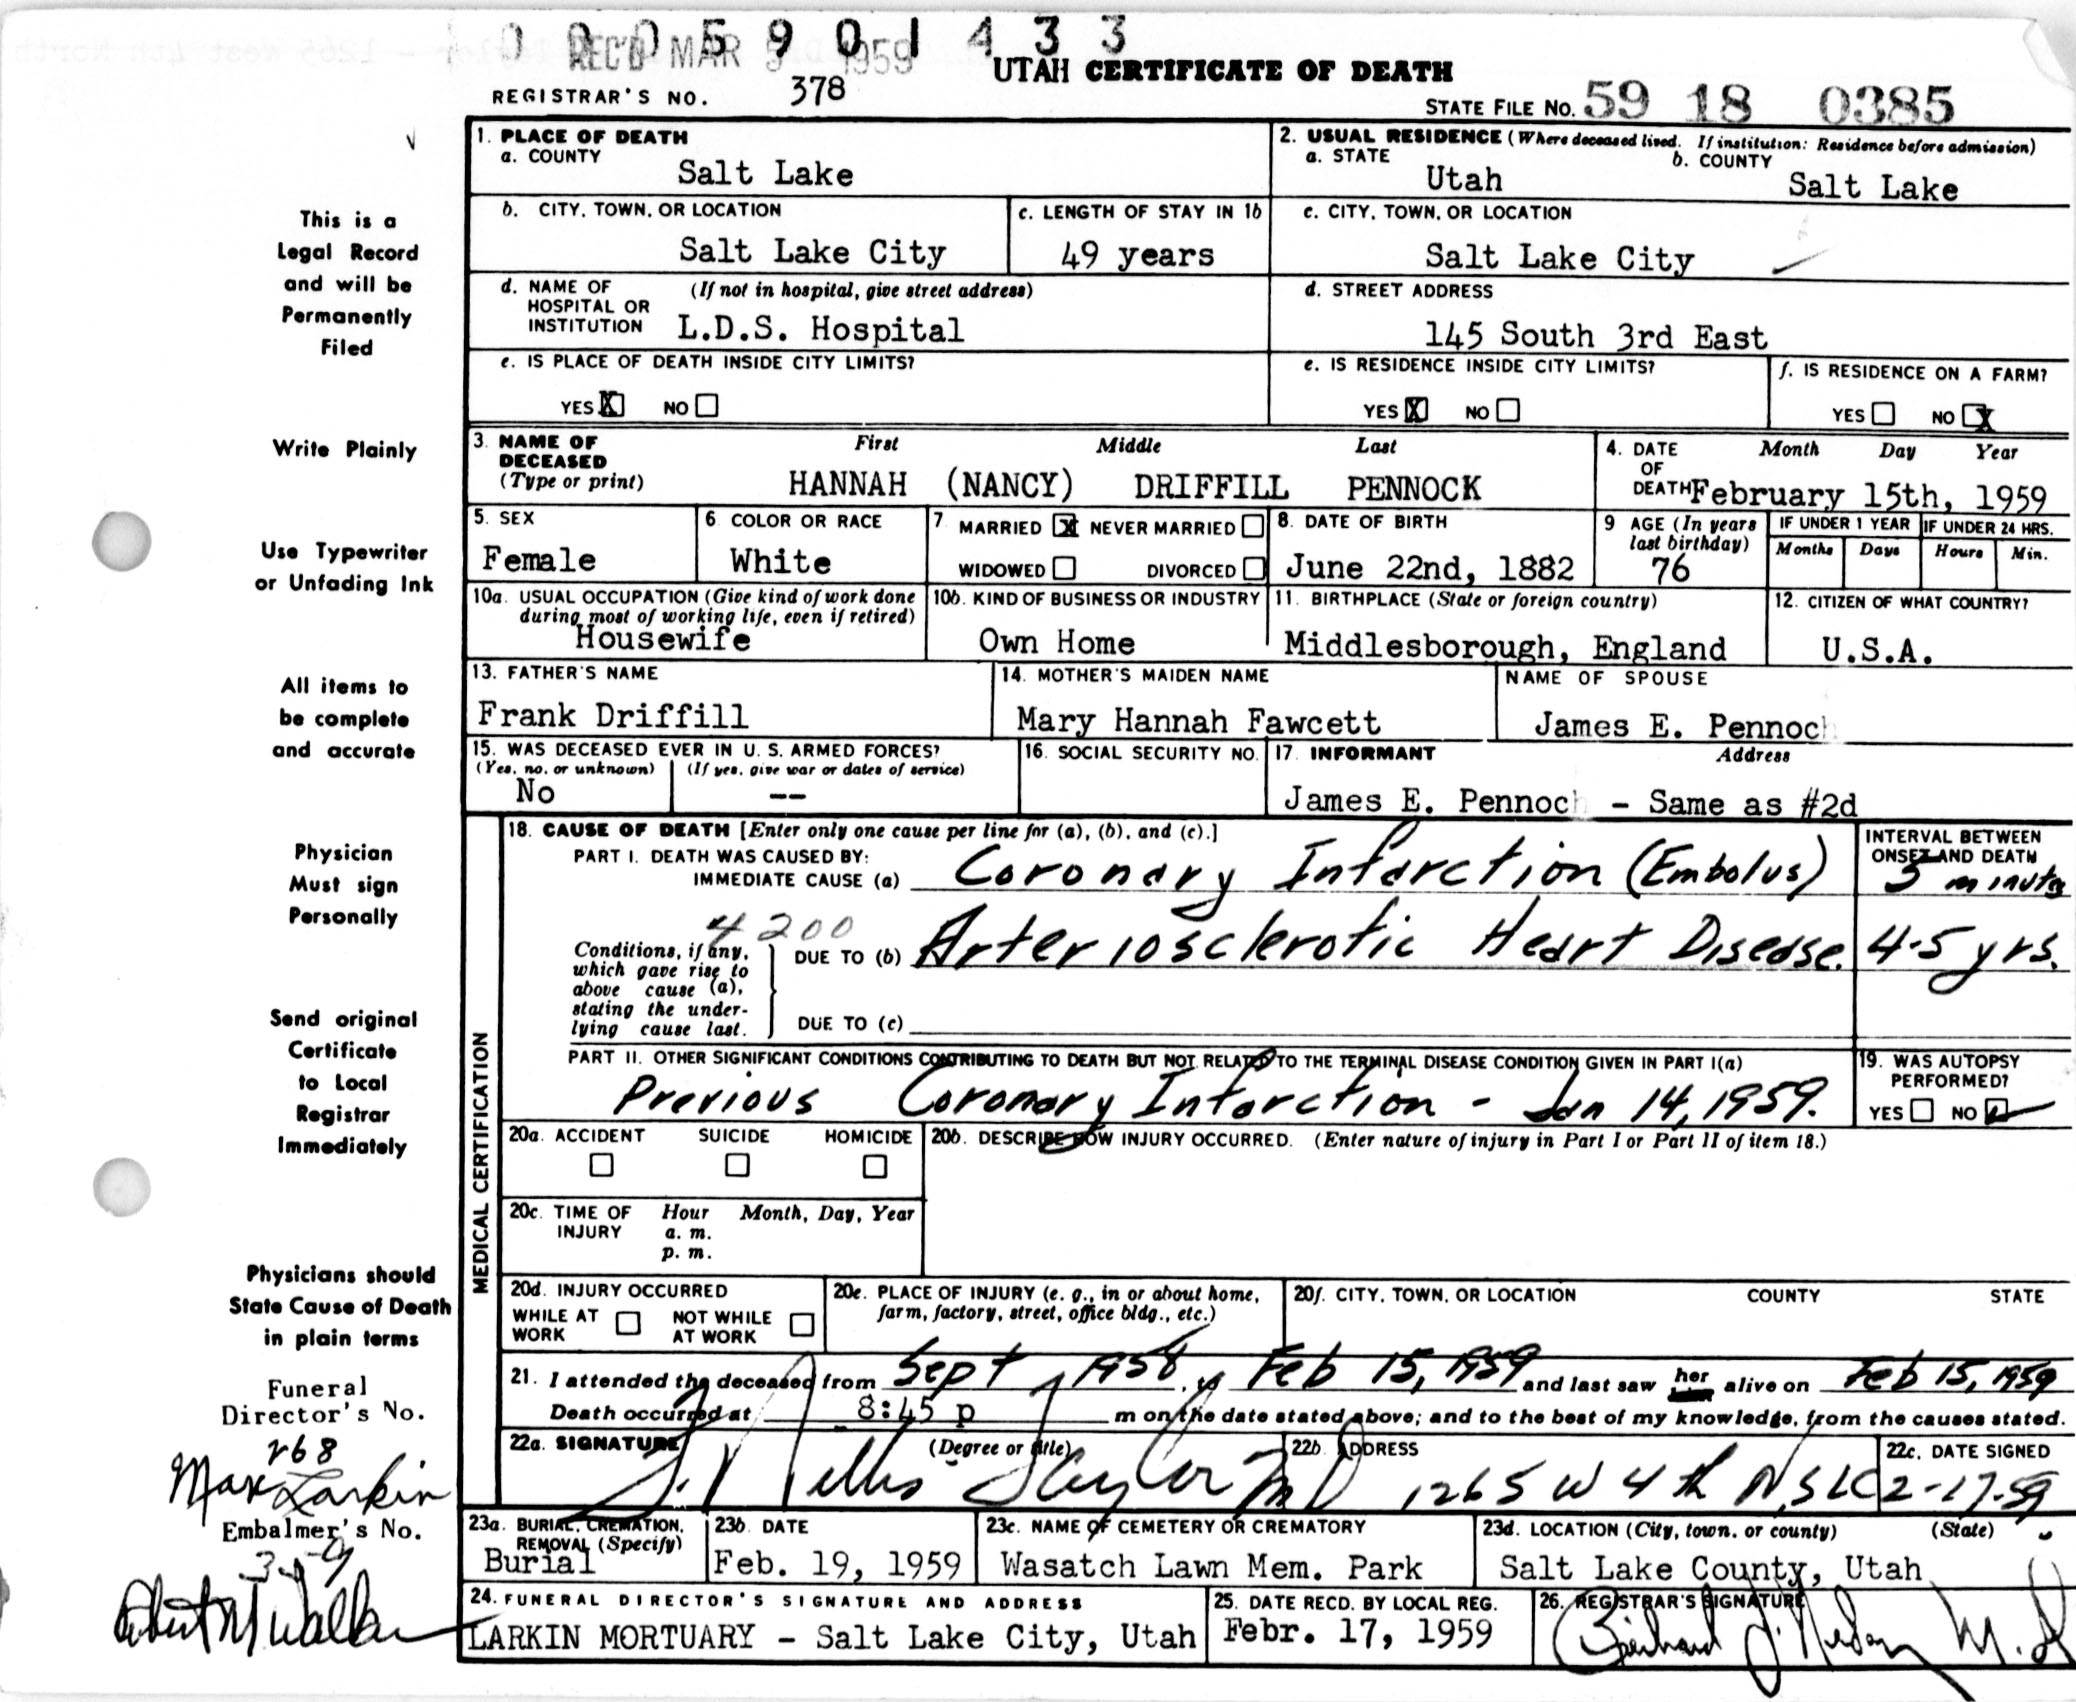 0 0 0 5 9 0 1 4 3 3
REC'D MAR 1959
UTAH CERTIFICATE OF DEATH
REGISTRAR'S NO. 378
STATE FILE NO. 59 18 0385
This is a
Legal Record
and will be
Permanently
Filed
Write Plainly
Use Typewriter
or Unfading Ink
All items to
be complete
and accurate
Physician
Must sign
Personally
Send original
Certificate
to Local
Registrar
Immediately
Physicians should
State Cause of Death
in plain terms
Funeral
Director's No.
268
Max Larkin
Embalmer's No.
1. PLACE OF DEATH
a. COUNTY
Salt Lake
2. USUAL RESIDENCE (Where deceased lived. If institution: Residence before admission)
a. STATE
Utah
b. COUNTY
Salt Lake
b. CITY, TOWN, OR LOCATION
Salt Lake City
c. LENGTH OF STAY IN 1b
49 years
c. CITY, TOWN, OR LOCATION
Salt Lake City
d. NAME OF HOSPITAL OR INSTITUTION (If not in hospital, give street address)
L.D.S. Hospital
d. STREET ADDRESS
145 South 3rd East
e. IS PLACE OF DEATH INSIDE CITY LIMITS?
YES X NO
e. IS RESIDENCE INSIDE CITY LIMITS?
YES X NO
f. IS RESIDENCE ON A FARM?
YES NO X
3. NAME OF DECEASED (Type or print)
First Middle Last
HANNAH (NANCY) DRIFFILL PENNOCK
4. DATE OF DEATH
Month Day Year
February 15th, 1959
5. SEX
Female
6 COLOR OR RACE
White
7 MARRIED X NEVER MARRIED
WIDOWED DIVORCED
8. DATE OF BIRTH
June 22nd, 1882
9 AGE (In years last birthday)
76
IF UNDER 1 YEAR
Months Days
IF UNDER 24 HRS.
Hours Min.
10a. USUAL OCCUPATION (Give kind of work done during most of working life, even if retired)
Housewife
10b. KIND OF BUSINESS OR INDUSTRY
Own Home
11. BIRTHPLACE (State or foreign country)
Middlesborough, England
12. CITIZEN OF WHAT COUNTRY?
U.S.A.
13. FATHER'S NAME
Frank Driffill
14. MOTHER'S MAIDEN NAME
Mary Hannah Fawcett
NAME OF SPOUSE
James E. Pennock
15. WAS DECEASED EVER IN U. S. ARMED FORCES?
(Yes, no, or unknown) (If yes, give war or dates of service)
No --
16. SOCIAL SECURITY NO.
17. INFORMANT Address
James E. Pennock - Same as #2d
MEDICAL CERTIFICATION
18. CAUSE OF DEATH [Enter only one cause per line for (a), (b), and (c).]
PART I. DEATH WAS CAUSED BY:
IMMEDIATE CAUSE (a) Coronary Infarction (Embolus)
INTERVAL BETWEEN ONSET AND DEATH
5 minutes
4200
Conditions, if any, which gave rise to above cause (a), stating the underlying cause last.
DUE TO (b) Arteriosclerotic Heart Disease. 4-5 yrs.
DUE TO (c)
PART II. OTHER SIGNIFICANT CONDITIONS CONTRIBUTING TO DEATH BUT NOT RELATED TO THE TERMINAL DISEASE CONDITION GIVEN IN PART I(a)
Previous Coronary Infarction - Jan 14, 1959.
19. WAS AUTOPSY PERFORMED?
YES NO
20a. ACCIDENT SUICIDE HOMICIDE
20b. DESCRIBE HOW INJURY OCCURRED. (Enter nature of injury in Part I or Part II of item 18.)
20c. TIME OF INJURY Hour Month, Day, Year
a. m.
p. m.
20d. INJURY OCCURRED
WHILE AT WORK NOT WHILE AT WORK
20e. PLACE OF INJURY (e. g., in or about home, farm, factory, street, office bldg., etc.)
20f. CITY, TOWN, OR LOCATION COUNTY STATE
21. I attended the deceased from Sept 1958, to Feb 15, 1959 and last saw her alive on Feb 15, 1959
Death occurred at 8:45 p m on the date stated above; and to the best of my knowledge, from the causes stated.
22a. SIGNATURE (Degree or title)
Taylor MD
22b. ADDRESS
1265 W 4th N, SLC
22c. DATE SIGNED
2-17-59
23a. BURIAL, CREMATION, REMOVAL (Specify)
Burial
23b. DATE
Feb. 19, 1959
23c. NAME OF CEMETERY OR CREMATORY
Wasatch Lawn Mem. Park
23d. LOCATION (City, town, or county) (State)
Salt Lake County, Utah
24. FUNERAL DIRECTOR'S SIGNATURE AND ADDRESS
LARKIN MORTUARY - Salt Lake City, Utah
25. DATE RECD. BY LOCAL REG.
Febr. 17, 1959
26. REGISTRAR'S SIGNATURE